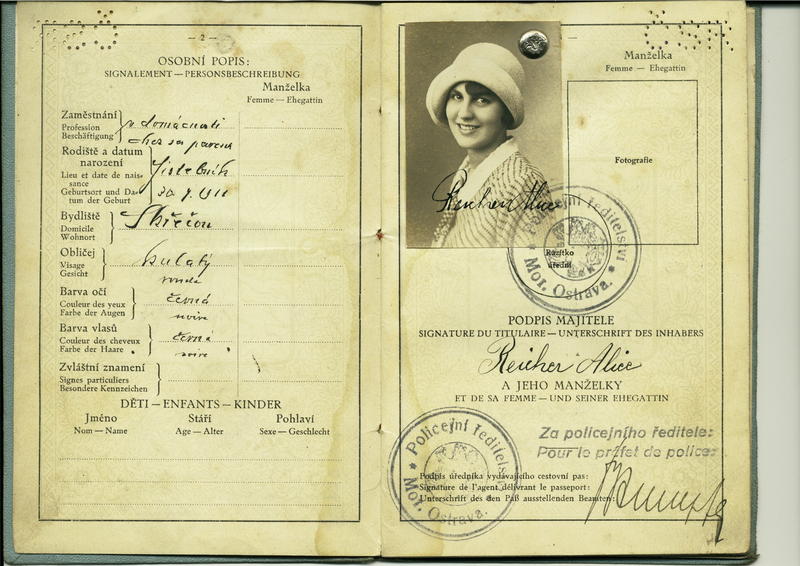 — 2 —
OSOBNÍ POPIS:
SIGNALEMENT — PERSONSBESCHREIBUNG
Manželka
Femme — Ehegattin
Zaměstnání
Profession
Beschäftigung
v domácnosti
chez sa parents
Rodiště a datum
narození
Lieu et date de nais-
sance
Geburtsort und Da-
tum der Geburt
Bydliště
Domicile
Wohnort
Skřečoň
Obličej
Visage
Gesicht
kulatý
ronde
Barva očí
Couleur des yeux
Farbe der Augen
černá
noire
Barva vlasů
Couleur des cheveux
Farbe der Haare
černá
noire
Zvláštní znamení
Signes particuliers
Besondere Kennzeichen
DĚTI — ENFANTS — KINDER
Jméno Stáří Pohlaví
Nom — Name Age — Alter Sexe — Geschlecht
Manželka
Femme — Ehegattin
Fotografie
Reicher Alice
Policejní ředitelství
Mor. Ostrava.
Razítko
úřední
PODPIS MAJITELE
SIGNATURE DU TITULAIRE — UNTERSCHRIFT DES INHABERS
Reicher Alice
A JEHO MANŽELKY
ET DE SA FEMME — UND SEINER EHEGATTIN
Policejní ředitelství
Mor. Ostrava.
Za policejního ředitele:
Pour le préfet de police:
Podpis úředníka vydávajícího cestovní pas:
Signature de l'agent délivrant le passeport:
Unterschrift des den Paß ausstellenden Beamten: